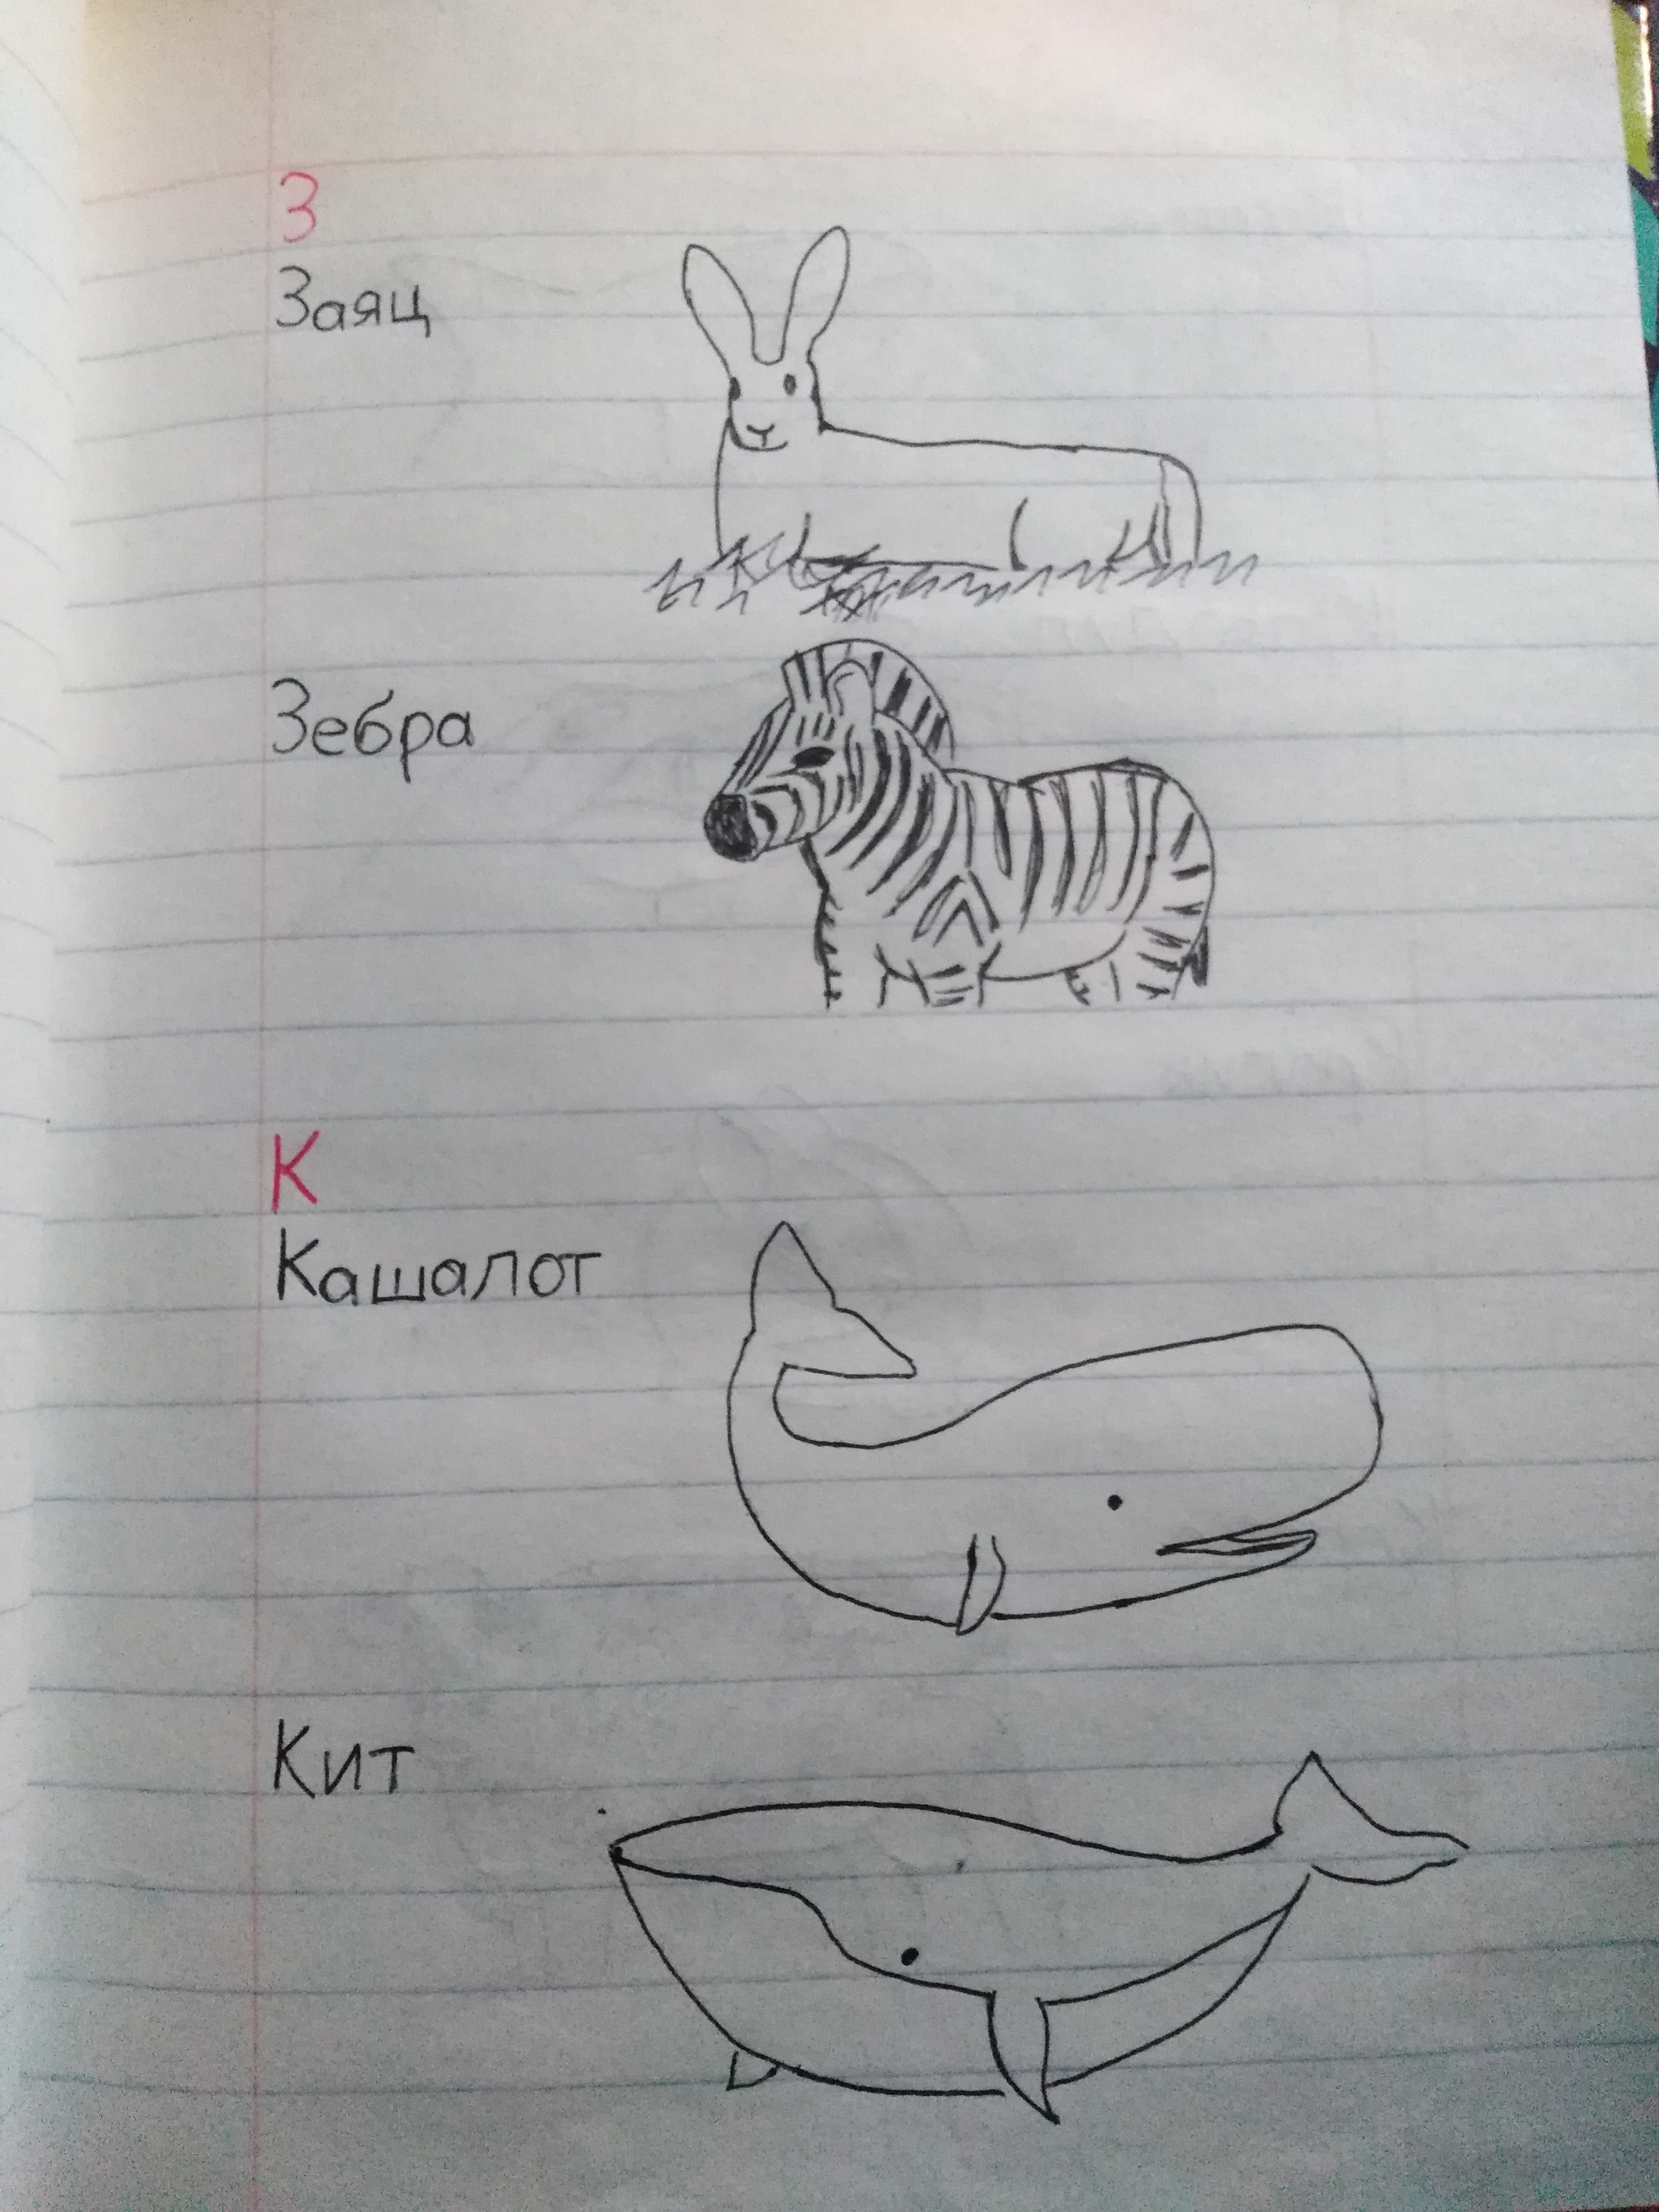 З
Заяц
Зебра
К
Кашалот
Кит